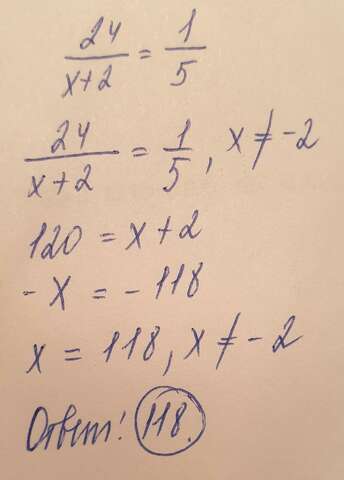 24/(x+2) = 1/5
24/(x+2) = 1/5, x ≠ -2
120 = x+2
-x = -118
x = 118, x ≠ -2
Ответ: 118.